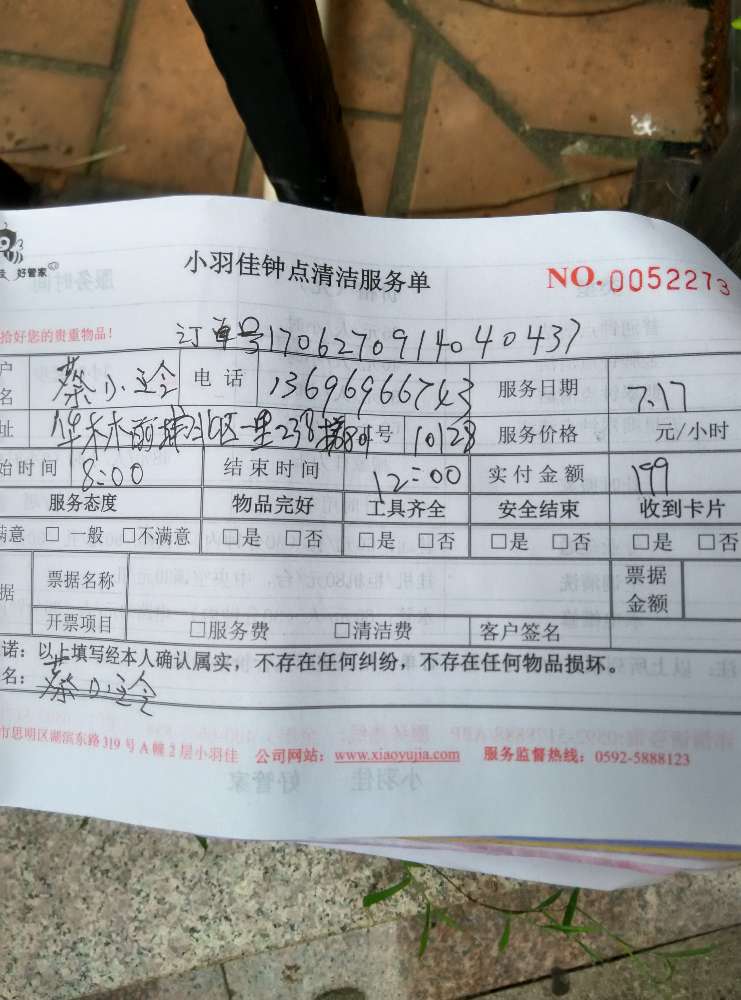 好管家
小羽佳钟点清洁服务单
NO.0052273
拾好您的贵重物品!
订单号1706270914040437
户名 蔡小 电话 13696966743 服务日期 7.17
址 号 10128 服务价格 元/小时
始时间 8:00 结束时间 12:00 实付金额 199
服务态度 物品完好 工具齐全 安全结束 收到卡片
满意 □一般 □不满意 □是 □否 □是 □否 □是 □否 □是 □否
据 票据名称 票据金额
开票项目 □服务费 □清洁费 客户签名
诺:以上填写经本人确认属实,不存在任何纠纷,不存在任何物品损坏。
名:蔡小
市思明区湖滨东路319号A幢2层小羽佳 公司网站:www.xiaoyujia.com 服务监督热线:0592-5888123